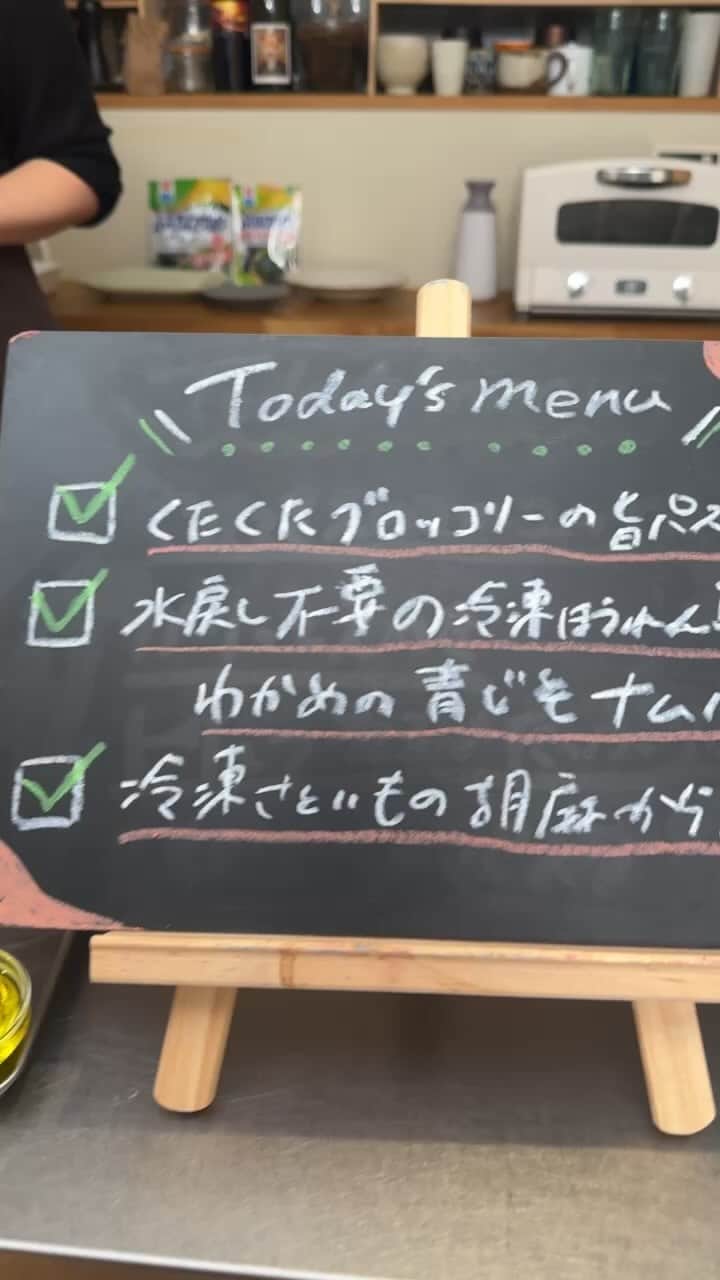 Today's menu
くたくたブロッコリーの旨パス
水戻し不要の冷凍ほうれん
わかめの青じそナム
冷凍さといもの胡麻から